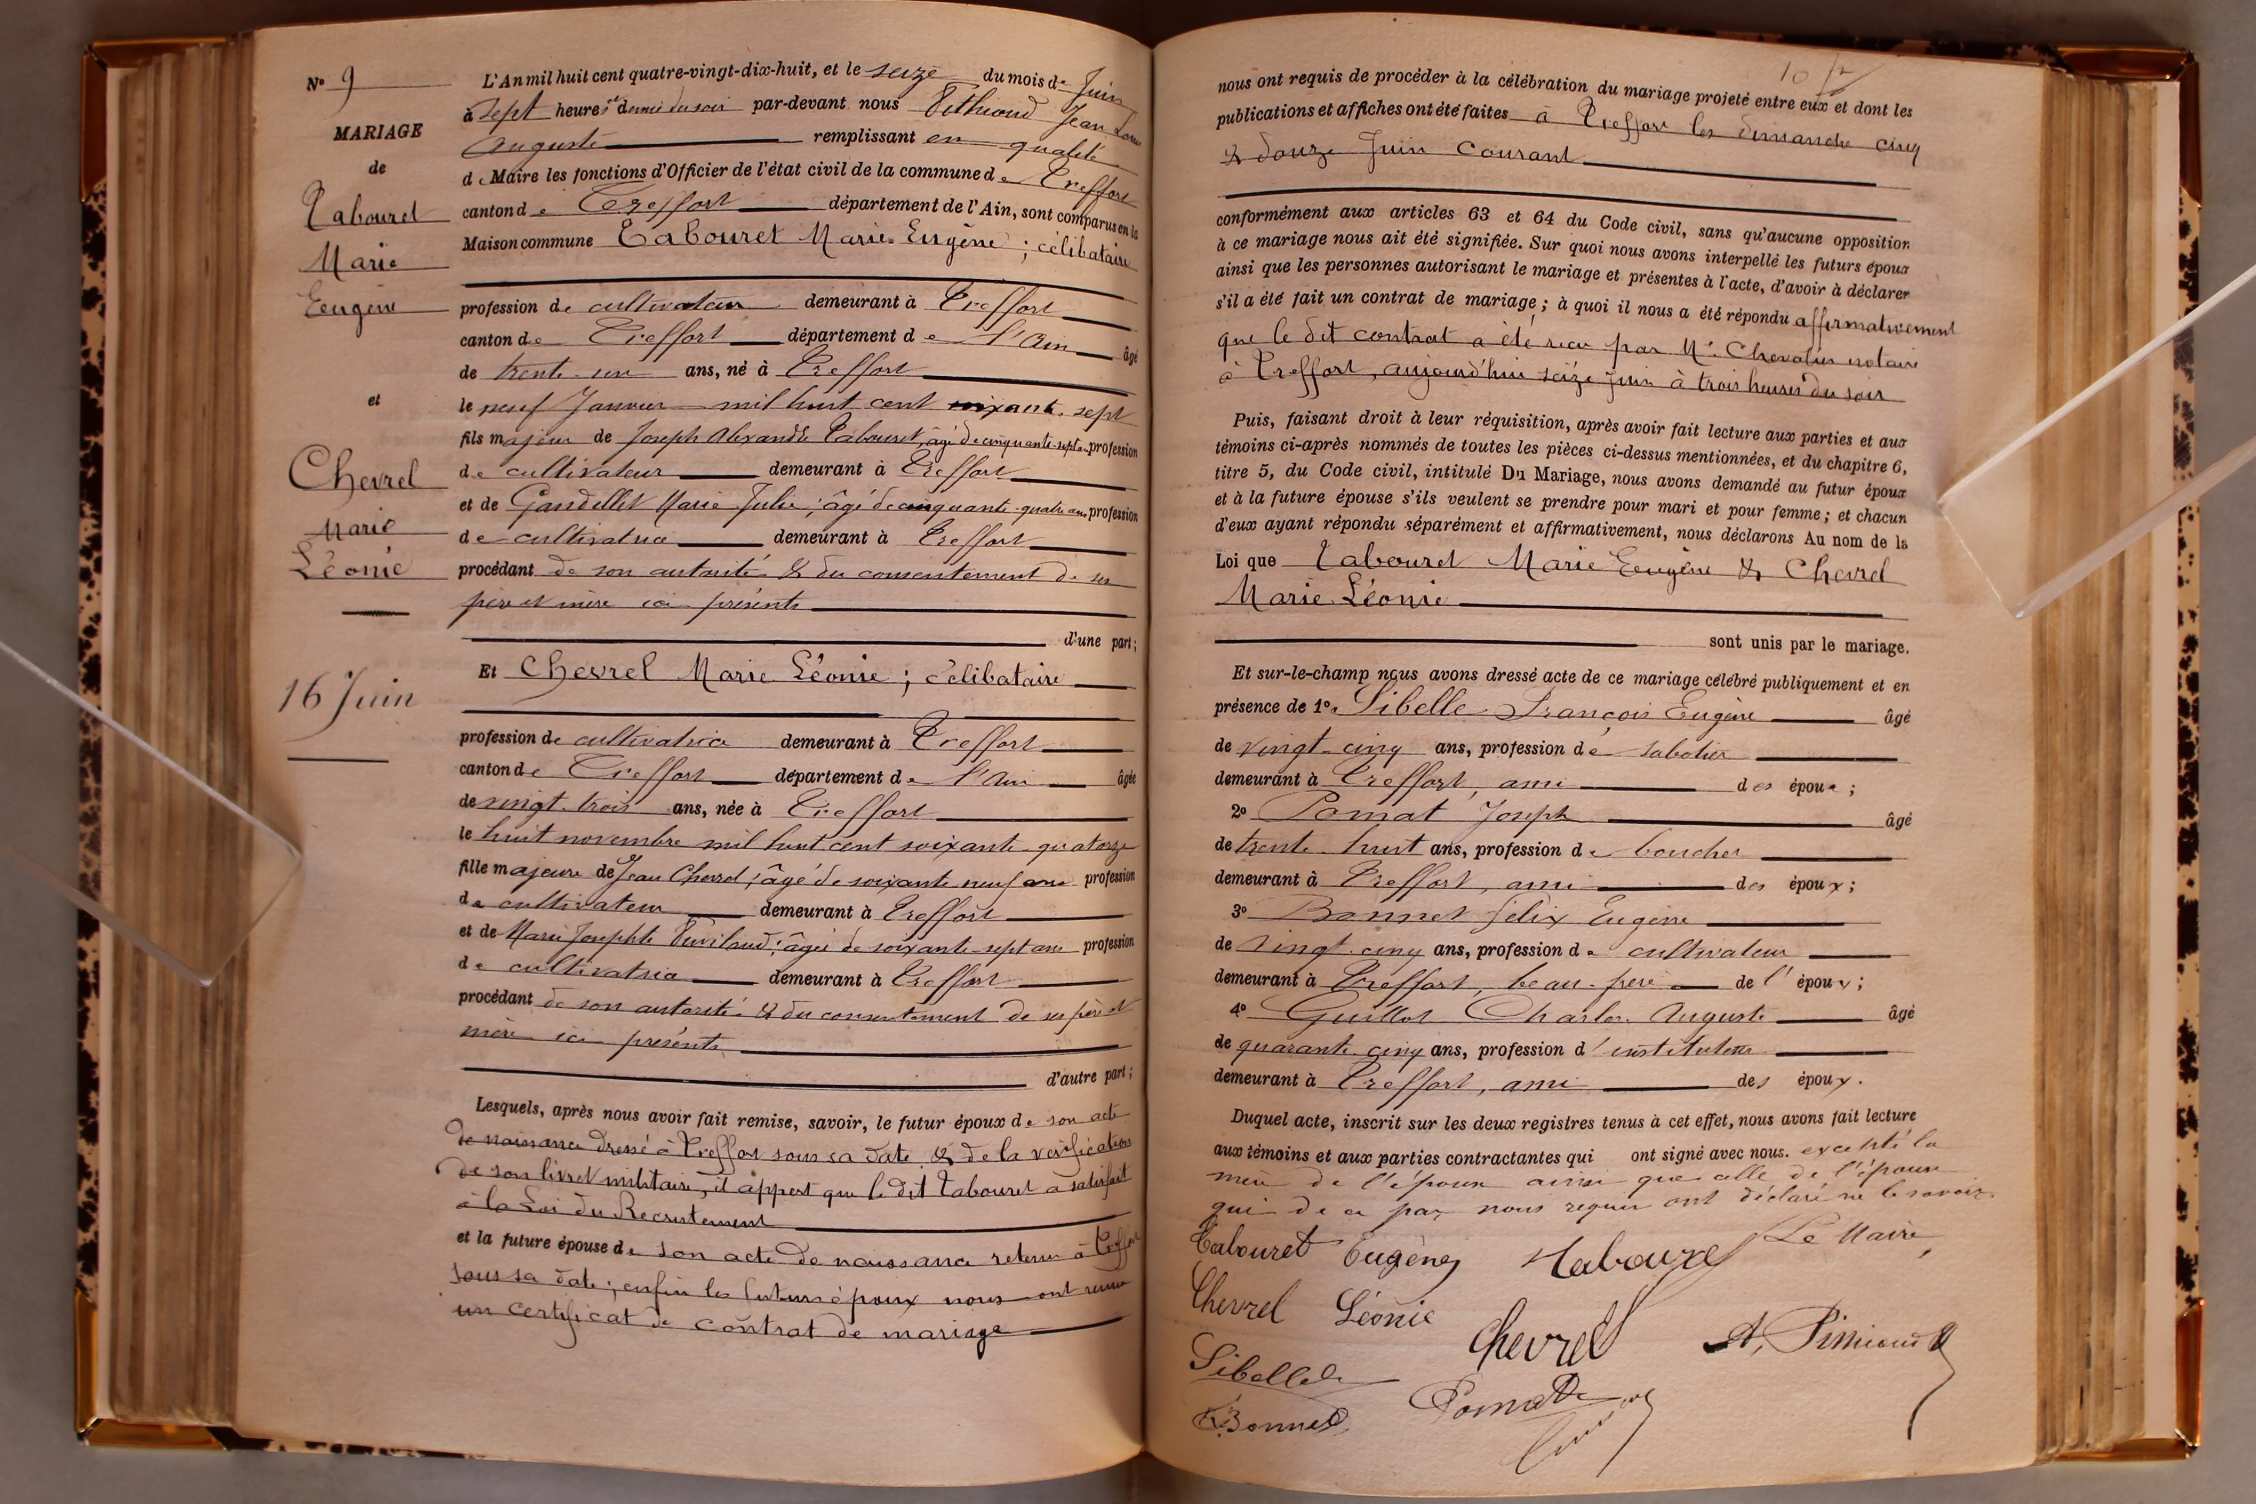 N° 9
MARIAGE
de
Tabouret
Marie
Eugène
et
Chevrel
Marie
Léonie
16 Juin
L'An mil huit cent quatre-vingt-dix-huit, et le seize du mois de Juin
à sept heures & demie du soir par-devant nous Jean Louis
Auguste remplissant en qualité
de Maire les fonctions d'Officier de l'état civil de la commune de Treffort
canton de Treffort département de l'Ain, sont comparus en la
Maison commune Tabouret Marie Eugène ; célibataire
profession de cultivateur demeurant à Treffort
canton de Treffort département de l'Ain âgé
de trente-un ans, né à Treffort
le neuf Janvier mil huit cent soixante sept
fils majeur de Joseph Alexandre Tabouret, âgé de cinquante-sept ans profession
de cultivateur demeurant à Treffort
et de Gandillet Marie Julie ; âgé de cinquante-quatre ans profession
de cultivatrice demeurant à Treffort
procédant de son autorité & du consentement de ses
père et mère ici présents
d'une part ;
Et Chevrel Marie Léonie ; célibataire
profession de cultivatrice demeurant à Treffort
canton de Treffort département de l'Ain âgée
de vingt-trois ans, née à Treffort
le huit novembre mil huit cent soixante-quatorze
fille majeure de Jean Chevrel ; âgé de soixante neuf ans profession
de cultivateur demeurant à Treffort
et de Marie Josephte ; âgée de soixante-sept ans profession
de cultivatrice demeurant à Treffort
procédant de son autorité & du consentement de ses père et
mère ici présents
d'autre part ;
Lesquels, après nous avoir fait remise, savoir, le futur époux de son acte
de naissance dressé à Treffort sous sa date & de la vérification
de son livret militaire, il appert que le dit Tabouret a satisfait
à la Loi du Recrutement
et la future épouse de son acte de naissance retenu à Treffort
sous sa date ; enfin les futurs époux nous ont remis
un certificat de contrat de mariage
10
nous ont requis de procéder à la célébration du mariage projeté entre eux et dont les
publications et affiches ont été faites à Treffort les dimanche cinq
& douze Juin courant
conformément aux articles 63 et 64 du Code civil, sans qu'aucune opposition
à ce mariage nous ait été signifiée. Sur quoi nous avons interpellé les futurs époux
ainsi que les personnes autorisant le mariage et présentes à l'acte, d'avoir à déclarer
s'il a été fait un contrat de mariage ; à quoi il nous a été répondu affirmativement
que le dit contrat a été reçu par Me Chevalier notaire
à Treffort, aujourd'hui seize Juin à trois heures du soir
Puis, faisant droit à leur réquisition, après avoir fait lecture aux parties et aux
témoins ci-après nommés de toutes les pièces ci-dessus mentionnées, et du chapitre 6,
titre 5, du Code civil, intitulé Du Mariage, nous avons demandé au futur époux
et à la future épouse s'ils veulent se prendre pour mari et pour femme ; et chacun
d'eux ayant répondu séparément et affirmativement, nous déclarons Au nom de la
Loi que Tabouret Marie Eugène & Chevrel
Marie Léonie
sont unis par le mariage.
Et sur-le-champ nous avons dressé acte de ce mariage célébré publiquement et en
présence de 1° Sibelle François Eugène âgé
de vingt-cinq ans, profession de sabotier
demeurant à Treffort, ami des époux ;
2° Pomat Joseph âgé
de trente-huit ans, profession de boucher
demeurant à Treffort, ami des époux ;
3° Bonnet félix Eugène
de vingt-cinq ans, profession de cultivateur
demeurant à Treffort, beau-frère de l'époux ;
4° Guillot Charles Auguste âgé
de quarante-cinq ans, profession d'instituteur
demeurant à Treffort, ami des époux.
Duquel acte, inscrit sur les deux registres tenus à cet effet, nous avons fait lecture
aux témoins et aux parties contractantes qui ont signé avec nous. excepté la
mère de l'époux ainsi que celle de l'épouse
qui de ce par nous requis ont déclaré ne le savoir.
Tabouret Eugène Tabouret Le Maire,
Chevrel Léonie
Chevrel
Sibelle
Pomat
Bonnet